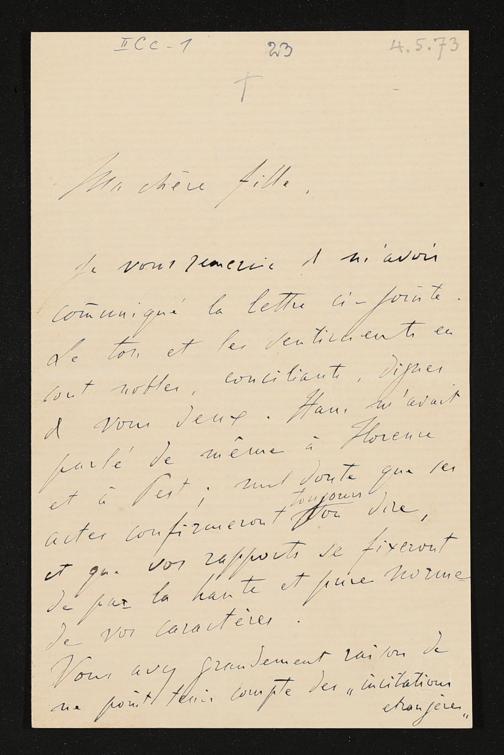 IICc-1 23 4.5.73
Ma chère fille,
Je vous remercie d m'avoir
communiqué la lettre ci-jointe.
Le ton et les sentiments en
sont nobles, conciliants, dignes
d vous deux. Hans m'avait
parlé de même à Florence
et à Pest; nul doute que ses
toujours
actes confirmeront son dire,
et que vos rapports se fixeront
de par la haute et pure norme
de vos caractères.
Vous avez grandement raison de
ne point tenir compte des „incitations
etrangères„